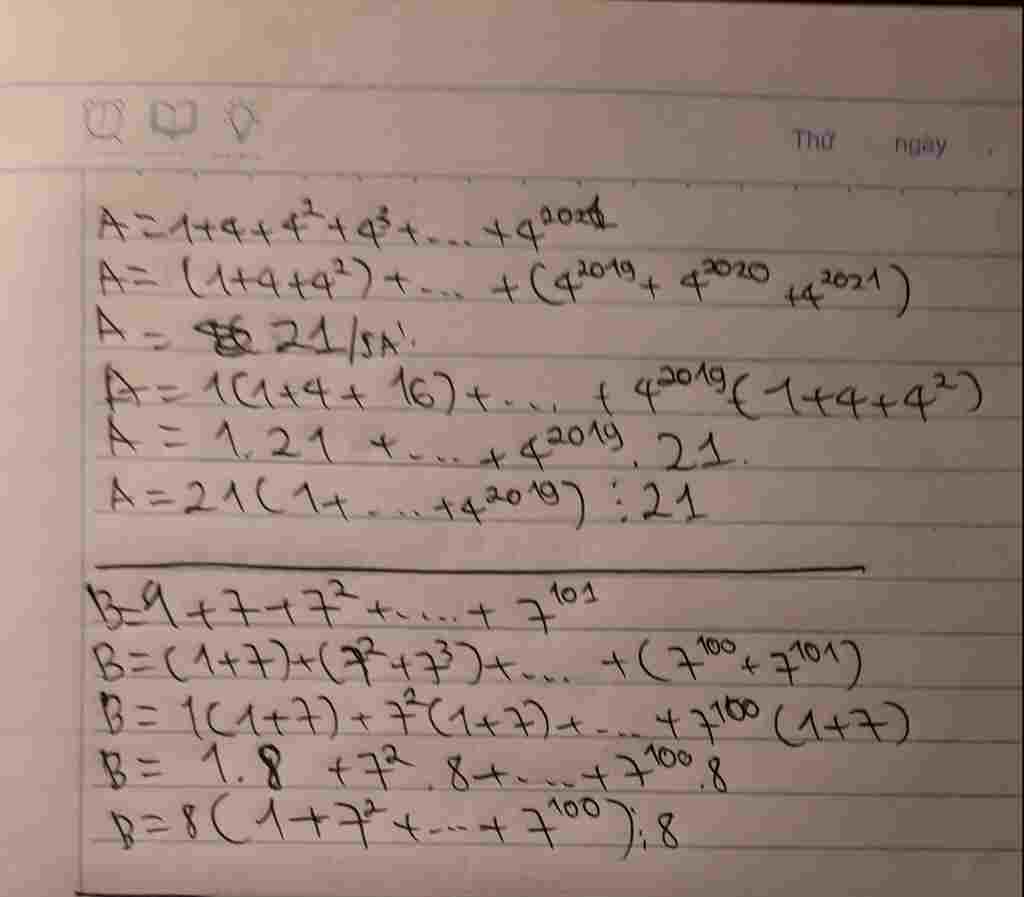 Thứ ngày
A = 1+4+4²+4³+....+4²⁰²¹
A = (1+4+4²)+....+(4²⁰¹⁹+4²⁰²⁰+4²⁰²¹)
A = 21/SA'.
A = 1(1+4+16)+....+4²⁰¹⁹(1+4+4²)
A = 1.21+....+4²⁰¹⁹.21.
A = 21(1+....+4²⁰¹⁹)⋮21
B=1+7+7²+.....+7¹⁰¹
B=(1+7)+(7²+7³)+....+(7¹⁰⁰+7¹⁰¹)
B= 1(1+7)+7²(1+7)+....+7¹⁰⁰(1+7)
B= 1.8+7².8+....+7¹⁰⁰.8
B=8(1+7²+....+7¹⁰⁰)⋮8